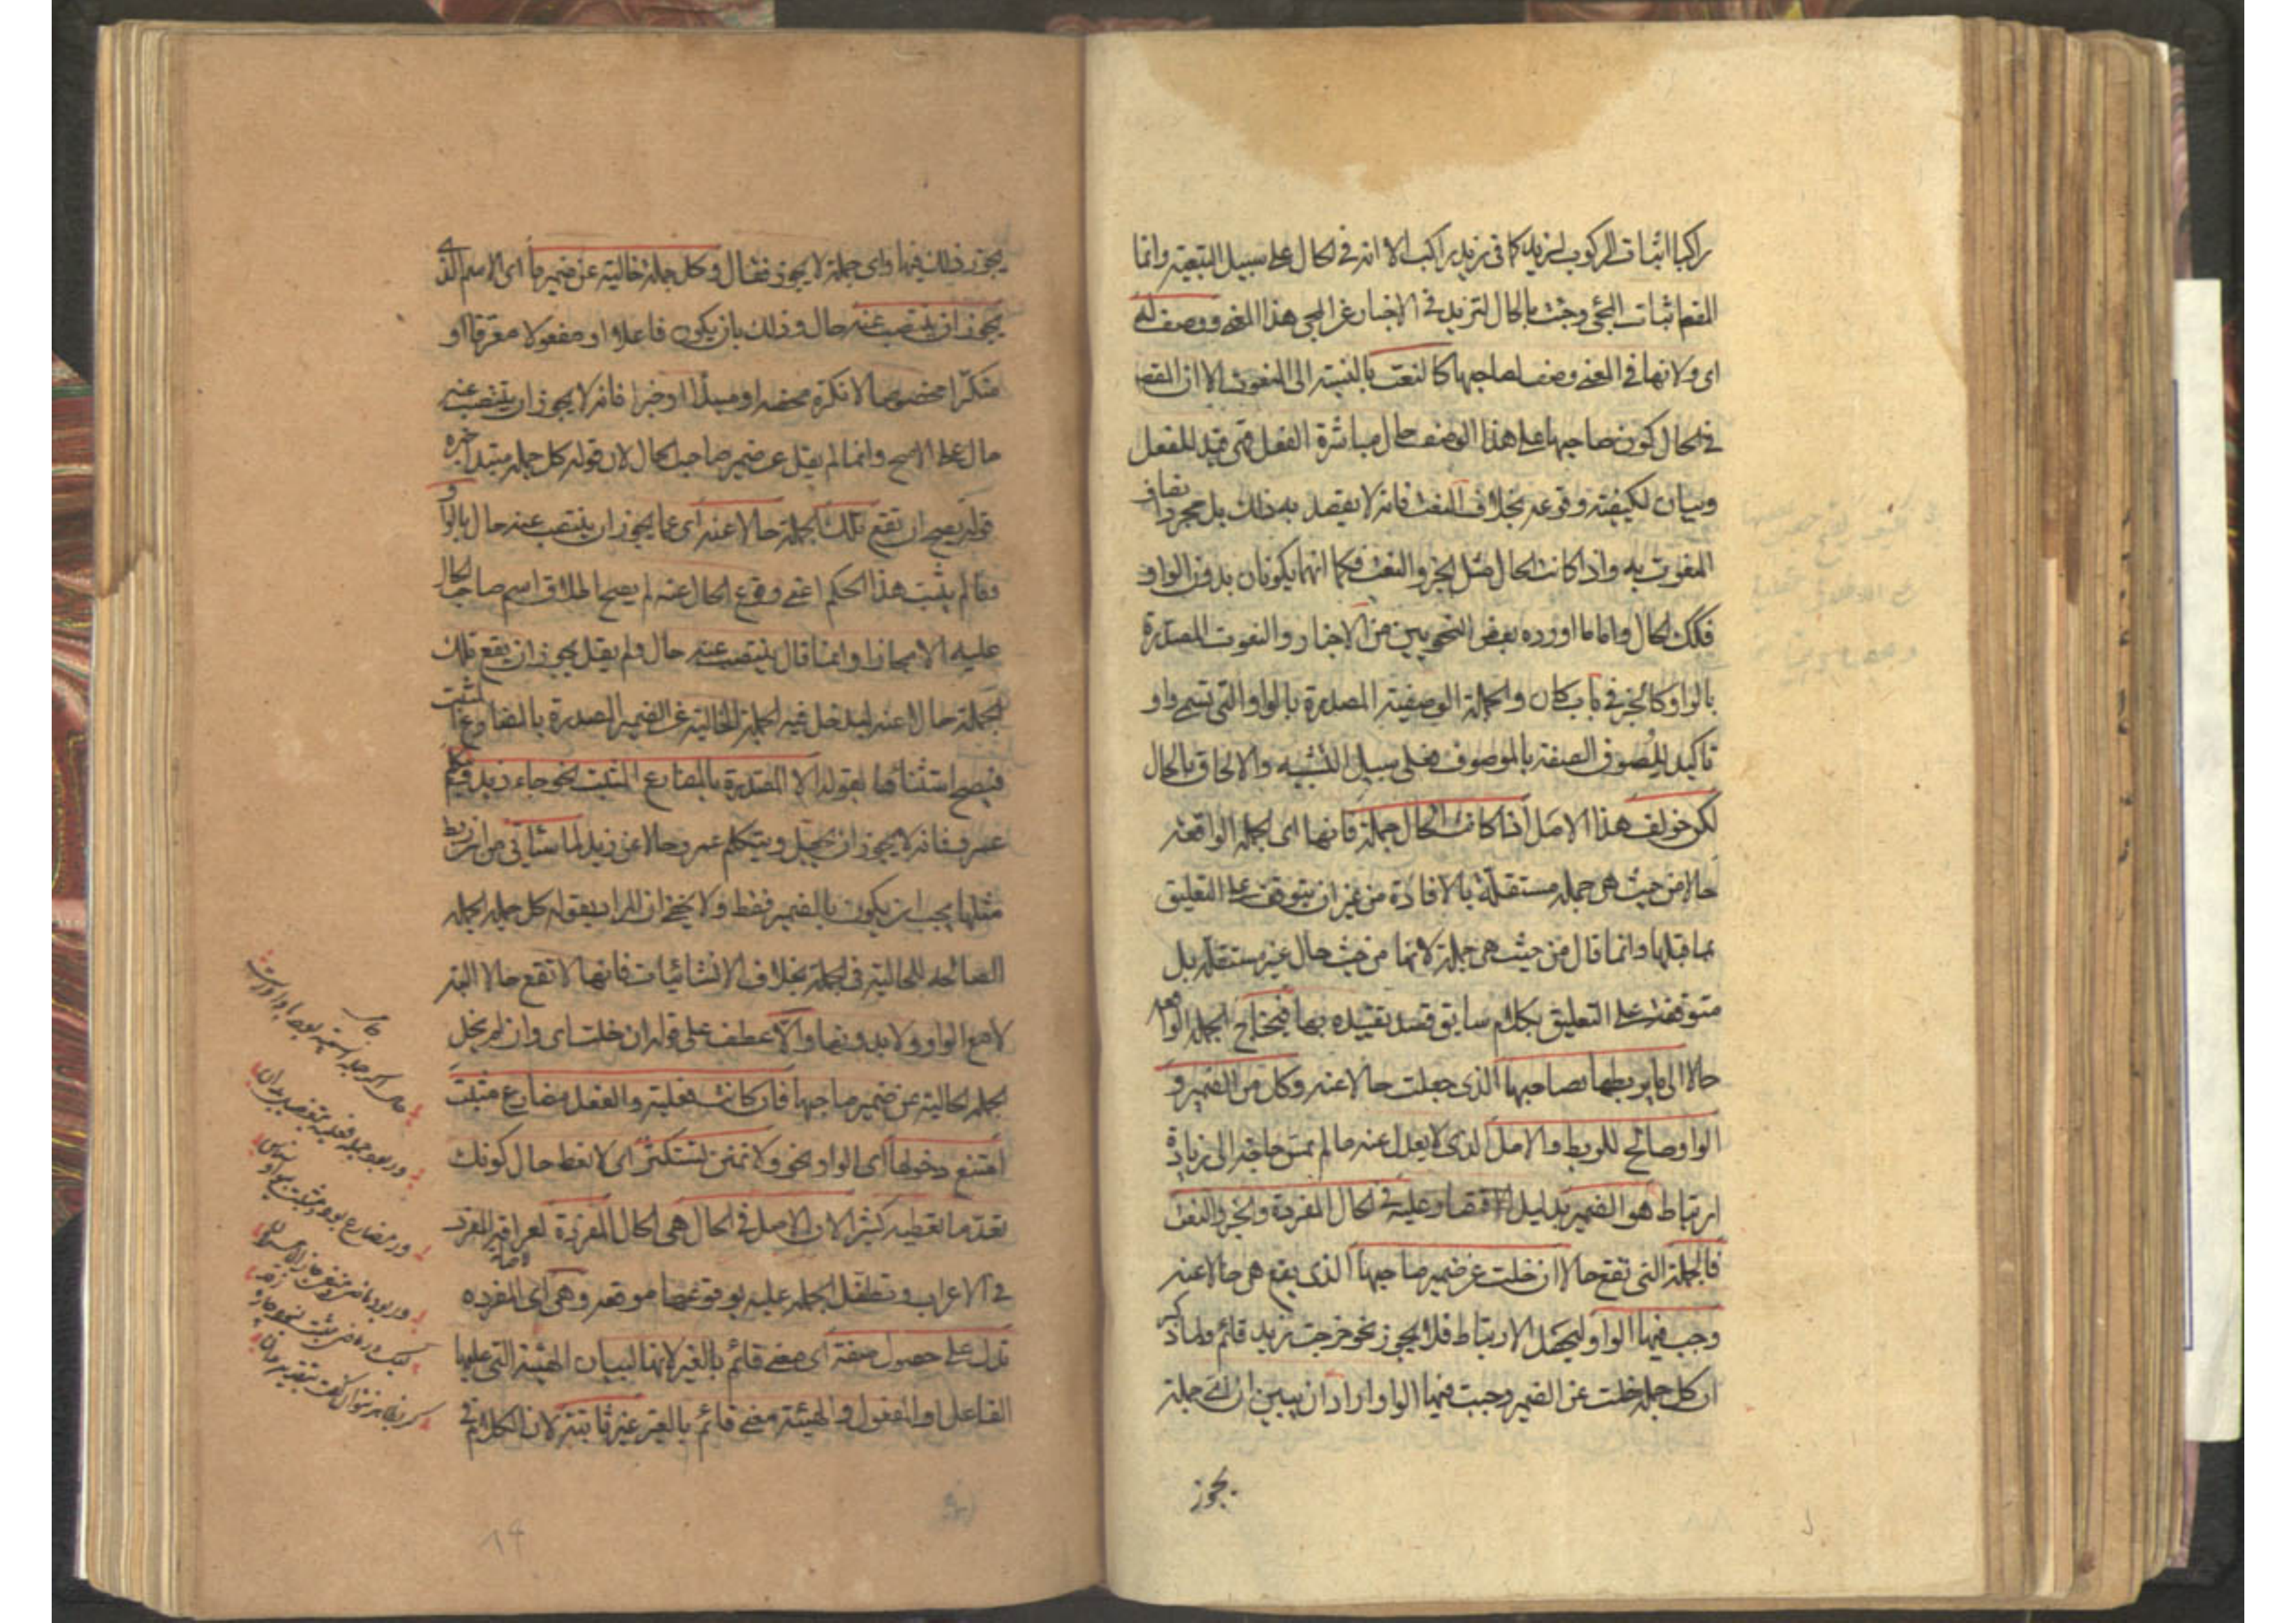 راكبا اثبات الركوب لزيد كما في زيد راكب الا انه في الحال على سبيل التبعية وانما
المقصود اثبات المجئ وجئت بالحال لتزيد في الاخبار عن المجئ هذا المعنى ووصف له
اى ولانها في المعنى وصف لصاحبها كالنعت بالنسبة الى المنعوت الا ان القصد
في الحال كون صاحبها على هذا الوصف حال مباشرة الفعل فهى قيد للفعل
وبيان لكيفية وقوعه بخلاف النعت فانه لا يقصد به ذلك بل مجرد اتصاف
المنعوت به واذا كانت الحال مثل الخبر والنعت فكما انهما يكونان بدون الواو
فكذلك الحال واما ما اورده بعض النحويين من الاخبار والنعوت المصدرة
بالواو كالخبر في باب كان والجملة الوصفية المصدرة بالواو التى تسمى واو
تاكيد للصوق الصفة بالموصوف فعلى سبيل التشبيه والالحاق بالحال
لكن خولف هذا الاصل اذا كانت الحال جملة فانها اى الجملة الواقعة
حالا من حيث هى جملة مستقلة بالافادة من غير ان يتوقف على التعليق
بما قبلها وانما قال من حيث هى جملة لانها من حيث حال غير مستقلة بل
متوقفة على التعليق بكلام سابق قصد تقييده بها فيحتاج الجملة الواقعة
حالا الى ما يربطها بصاحبها الذى جعلت حالا عنه وكل من الضمير و
الواو صالح للربط والاصل الذى لا يعدل عنه ما لم تمس حاجة الى زيادة
ارتباط هو الضمير بدليل الاقتصار عليه في الحال المفردة والخبر والنعت
فالجملة التى تقع حالا ان خلت عن ضمير صاحبها الذى يقع هى حالا عنه
وجب فيها الواو ليحصل الارتباط فلا يجوز نحو خرجت زيد قائم ولما ذكر
ان كل جملة خلت عن الضمير وجبت فيها الواو اراد ان يبين ان اى جملة
يجوز
يجوز ذلك فيها واى جملة لا يجوز فقال وكل جملة خالية عن ضمير ما اى الاسم الذى
يجوز ان ينتصب عنه حال وذلك بان يكون فاعلا او مفعولا معرفا او
منكرا مخصوصا لا نكرة محضة او مبتدأ او خبرا فانه لا يجوز ان ينتصب عنه
حال على الاصح وانما لم يقل عن ضمير صاحب الحال لان قوله كل جملة مبتدأ خبره
قوله يصح ان تقع تلك الجملة حالا عنه اى عما يجوز ان ينتصب عنه حال بالواو
وما لم يثبت هذا الحكم اعنى وقوع الحال عنه لم يصح اطلاق اسم صاحب الحال
عليه الا مجازا وانما قال ينتصب عنه حال ولم يقل يجوز ان يقع تلك
الجملة حالا عنه ليدخل فيه الجملة الخالية عن الضمير المصدرة بالمضارع المثبت
فيصح استثنائها بقوله الا المصدرة بالمضارع المثبت نحو جاء زيد ويتكلم
عمرو فانه لا يجوز ان يجعل ويتكلم عمرو حالا عن زيد لما سيأتى من ان ربط
مثلها يجب ان يكون بالضمير فقط ولا يخفى ان المراد بقوله كل جملة الجملة
الصالحة للحالية في الجملة بخلاف الانشائيات فانها لا تقع حالا البتة
لا مع الواو ولا بدونها والا عطف على قوله ان خلت اى وان لم يخل
الجملة الحالية عن ضمير صاحبها فان كانت فعلية والفعل مضارع مثبت
امتنع دخولها اى الواو نحو ولا تمنن تستكثر اى لا تعط حال كونك
تعد ما تعطيه كثيرا لان الاصل في الحال هى الحال المفردة لعراقة المفرد
في الاعراب وتطفل الجملة عليه بوقوعها موقعه وهى اى المفردة
تدل على حصول صفة اى معنى قائم بالغير لانها لبيان الهيئة التى عليها
الفاعل او المفعول والهيئة معنى قائم بالغير غير ثابتة لان الكلام في